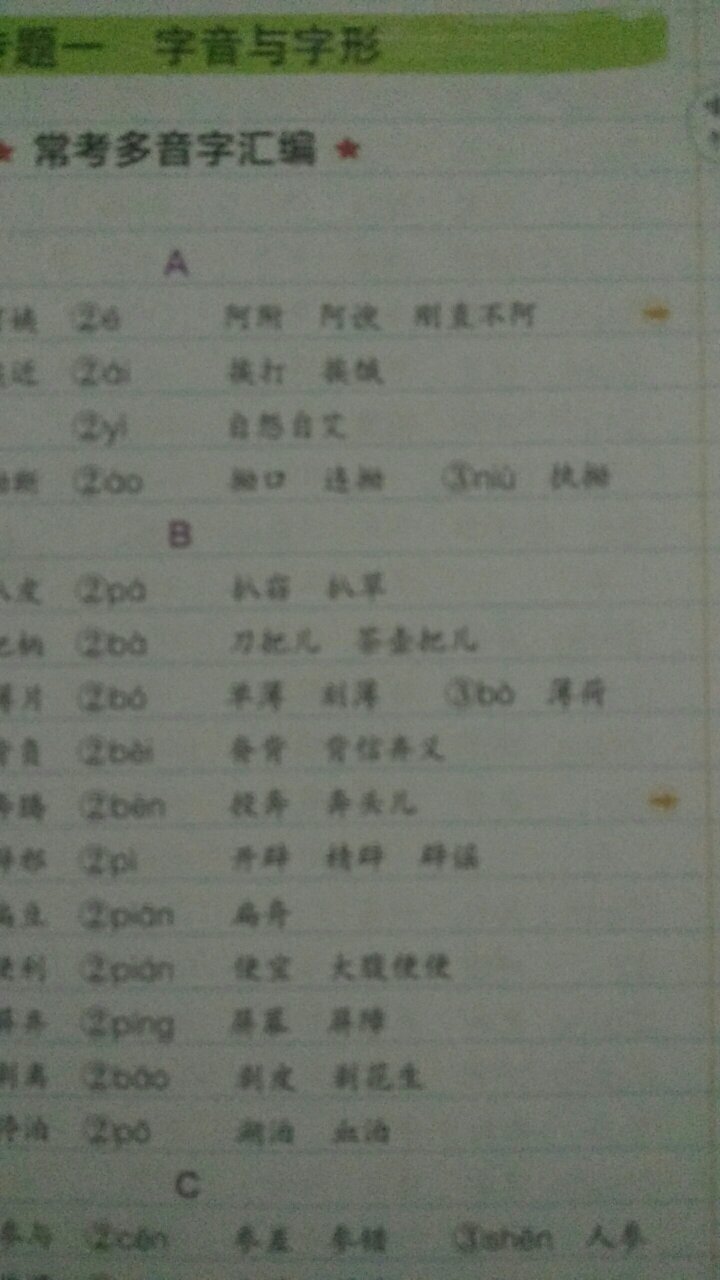 专题一 字音与字形
★ 常考多音字汇编 ★
A
阿姨 ②ē 阿附 阿谀 刚直不阿
挨近 ②ái 挨打 挨饿
②yì 自怨自艾
拗断 ②ào 拗口 违拗 ③niù 执拗
B
扒皮 ②pá 扒窃 扒草
把柄 ②bà 刀把儿 茶壶把儿
薄片 ②bó 单薄 刻薄 ③bò 薄荷
背负 ②bèi 脊背 背信弃义
奔腾 ②bèn 投奔 奔头儿
辟邪 ②pì 开辟 精辟 辟谣
扁豆 ②piān 扁舟
便利 ②pián 便宜 大腹便便
屏弃 ②píng 屏幕 屏障
剥离 ②bāo 剥皮 剥花生
停泊 ②pō 湖泊 血泊
C
参与 ②cēn 参差 参错 ③shēn 人参